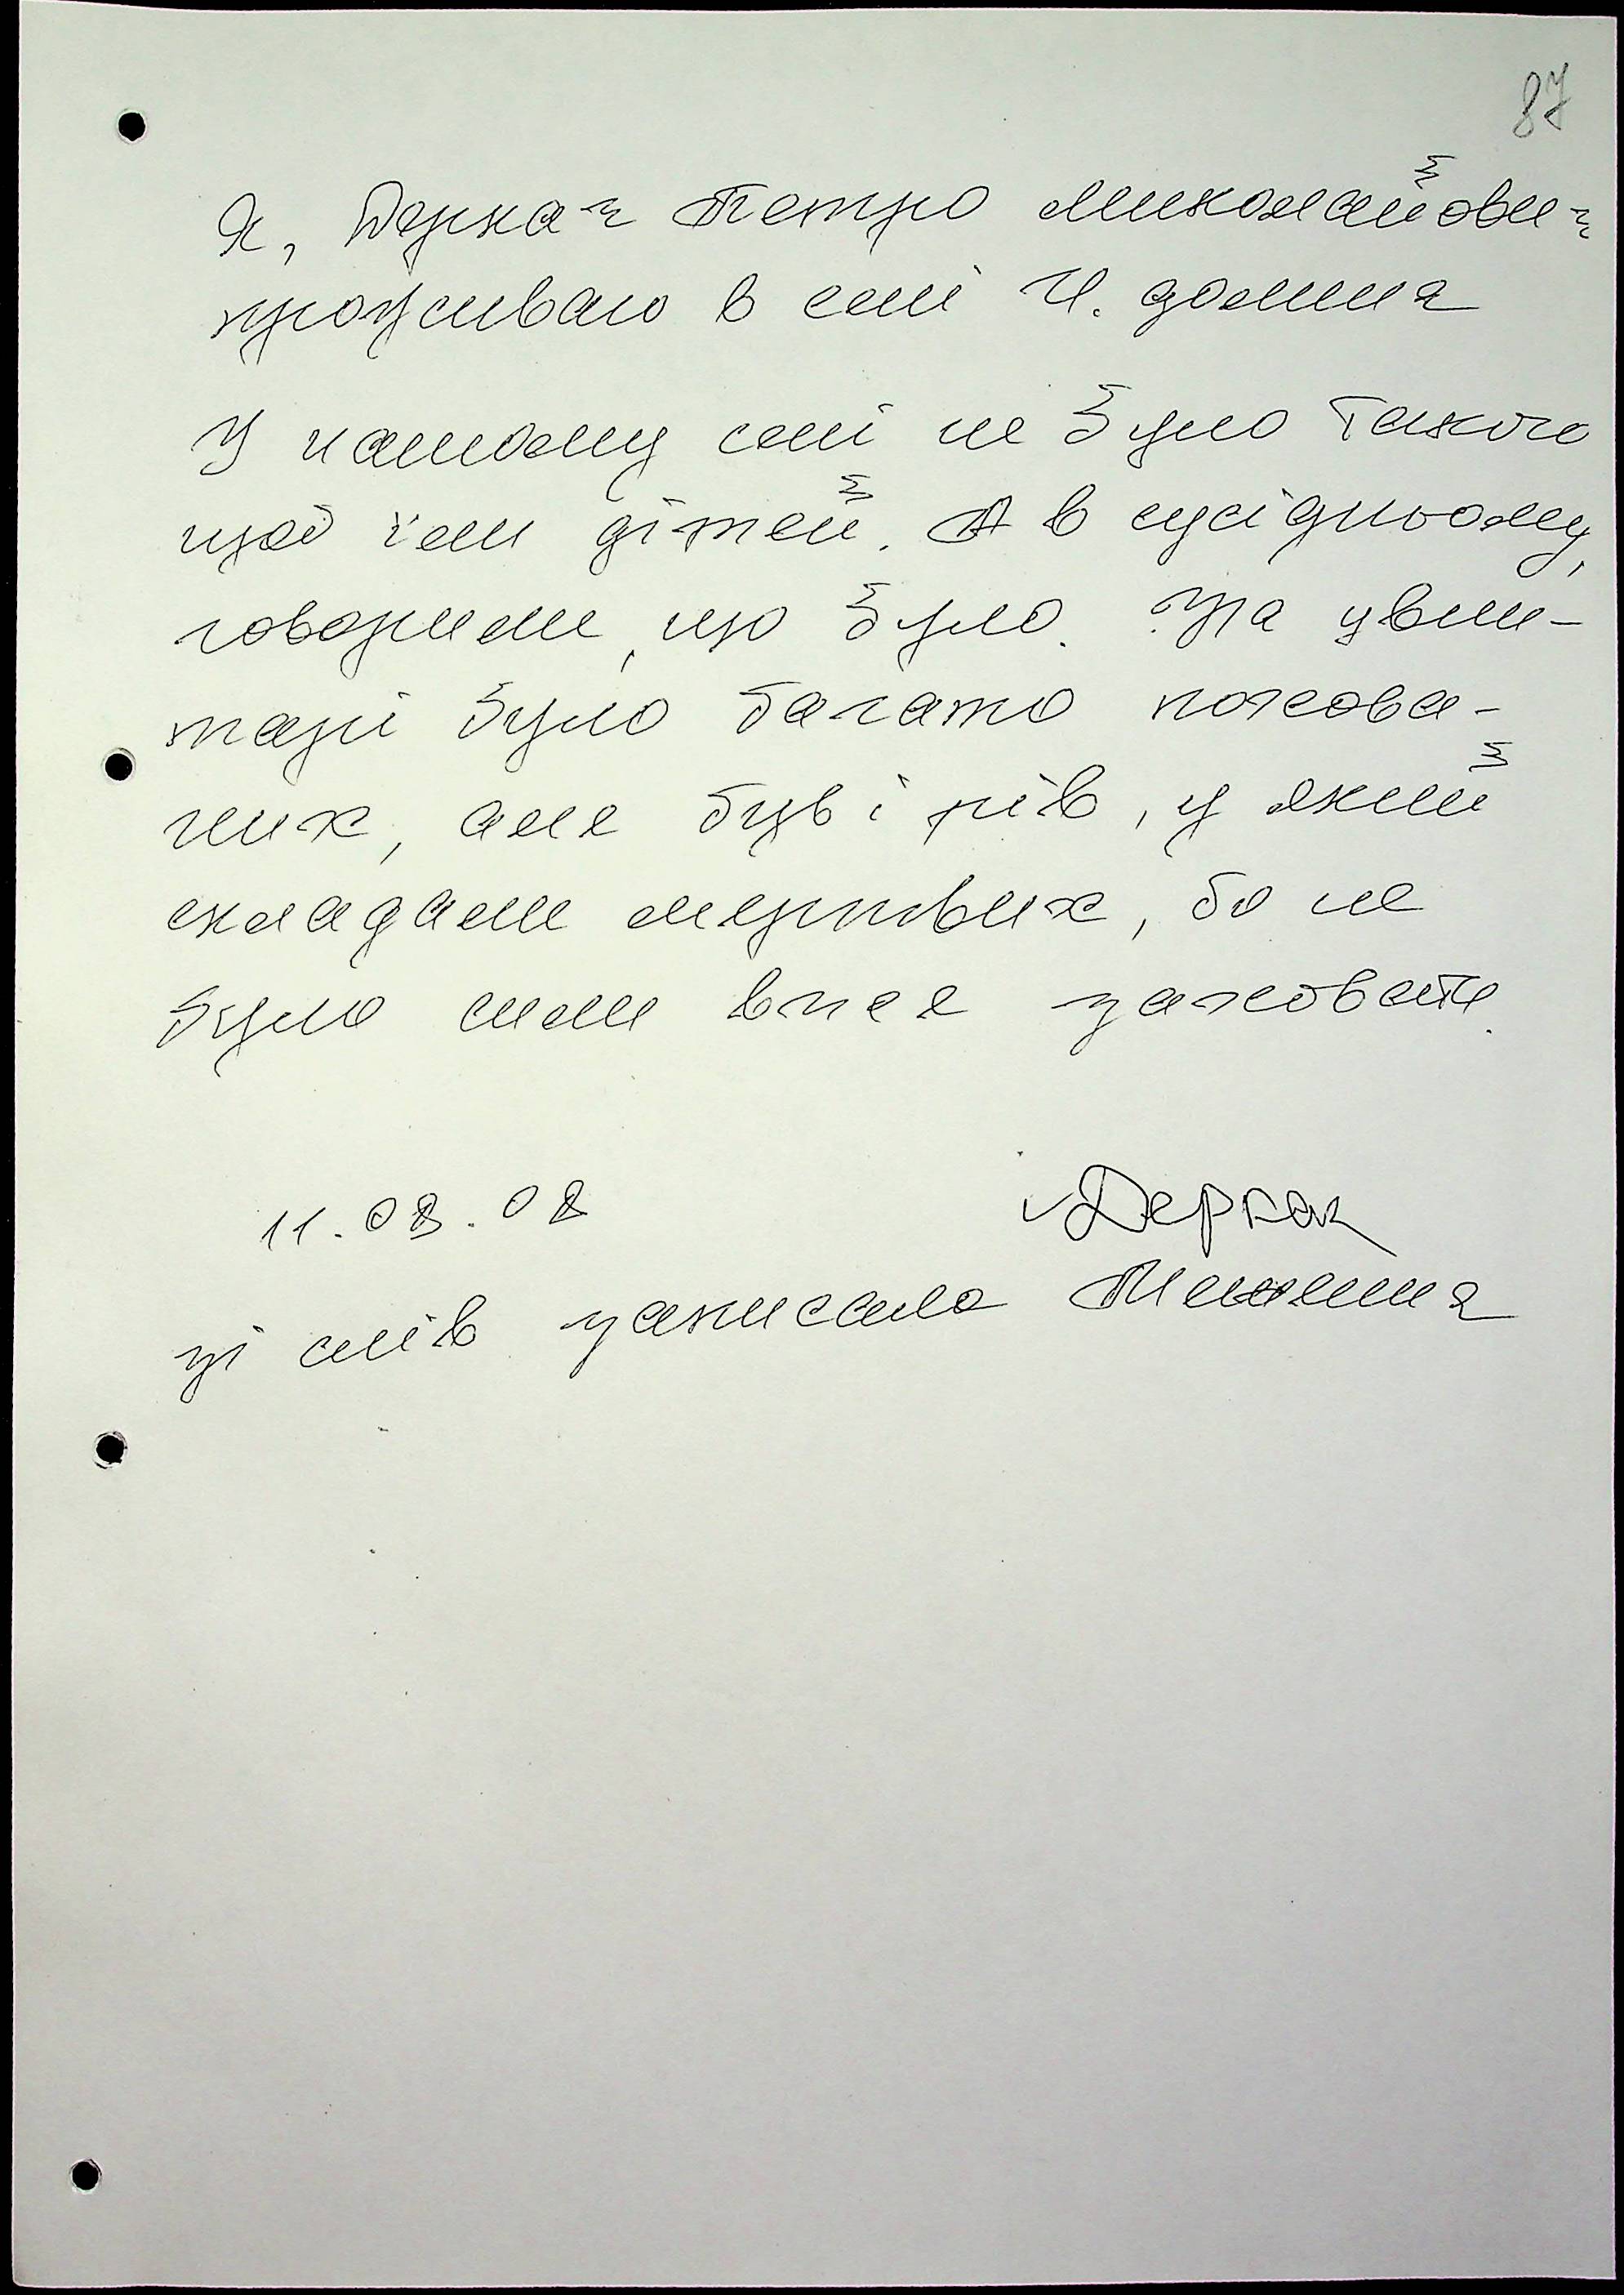 87
Я, Деркач Петро Миколайович
проживаю в селі Ч. долина
У нашому селі не було такого
щоб їли дітей. А в сусідньому,
говорили, що було. На цвин-
тарі було багато похова-
них, але був і рів, у який
складали мертвих, бо не
було сили вже ховати.
11.08.08 Деркач
зі слів записала